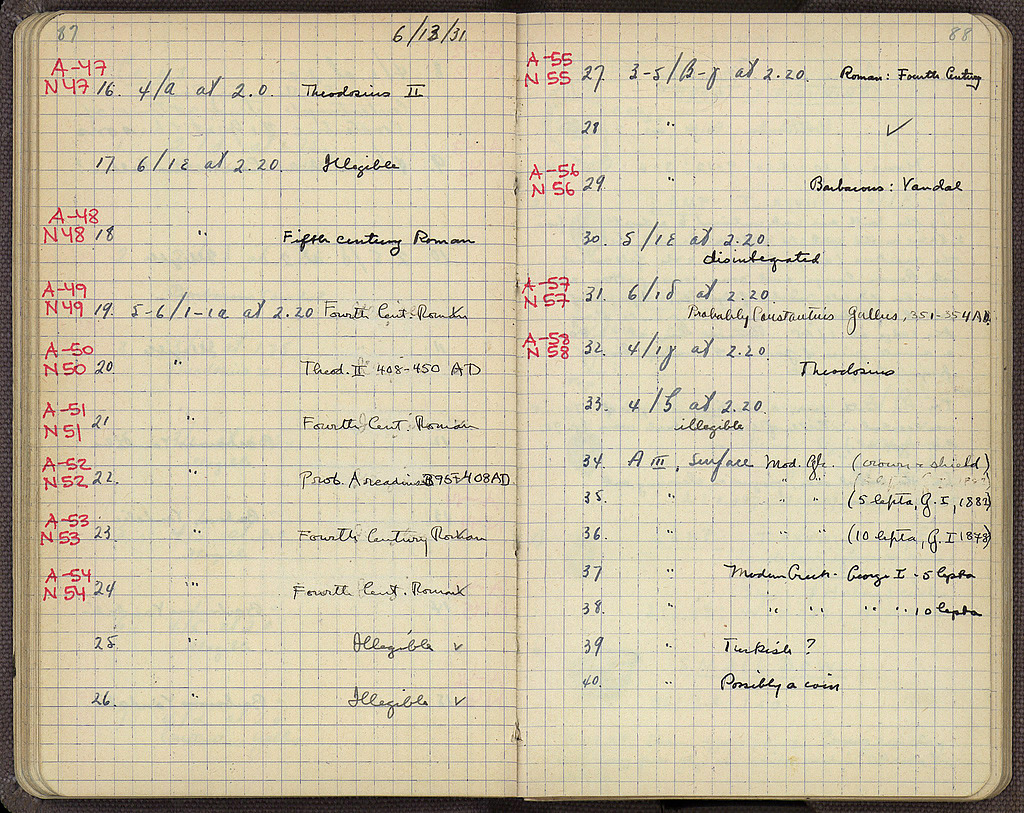 87
6/13/31
A-47
N47 16. 4/a at 2.0. Theodosius II
17. 6/1ε at 2.20. Illegible
A-48
N48 18 " Fifth century Roman
A-49
N49 19. 5-6/1-1a at 2.20 Fourth Cent. Roman
A-50
N50 20. " Theod. II 408-450 AD
A-51
N51 21 " Fourth Cent. Roman
A-52
N52 22. " Prob. Arcadius 395-408 AD
A-53
N53 23 " Fourth Century Roman
A-54
N54 24 " Fourth Cent. Roman
25 " Illegible ✓
26. " Illegible ✓
88
A-55
N55 27. 3-5/B-γ at 2.20. Roman: Fourth Century
28 " ✓
A-56
N56 29. " Barbarous: Vandal
30. 5/1ε at 2.20.
disintegrated
A-57
N57 31. 6/1δ at 2.20.
Probably Constantius Gallus, 351-354 AD.
A-58
N58 32. 4/1γ at 2.20.
Theodosius
33. 4/ at 2.20.
illegible
34. A III, Surface Mod. Gk. (crown & shield)
35. " " " (5 lepta, G. I, 1882)
36. " " " (10 lepta, G. I 1878)
37 " Modern Greek. George I - 5 lepta
38. " " " " " 10 lepta
39 " Turkish ?
40. " Possibly a coin